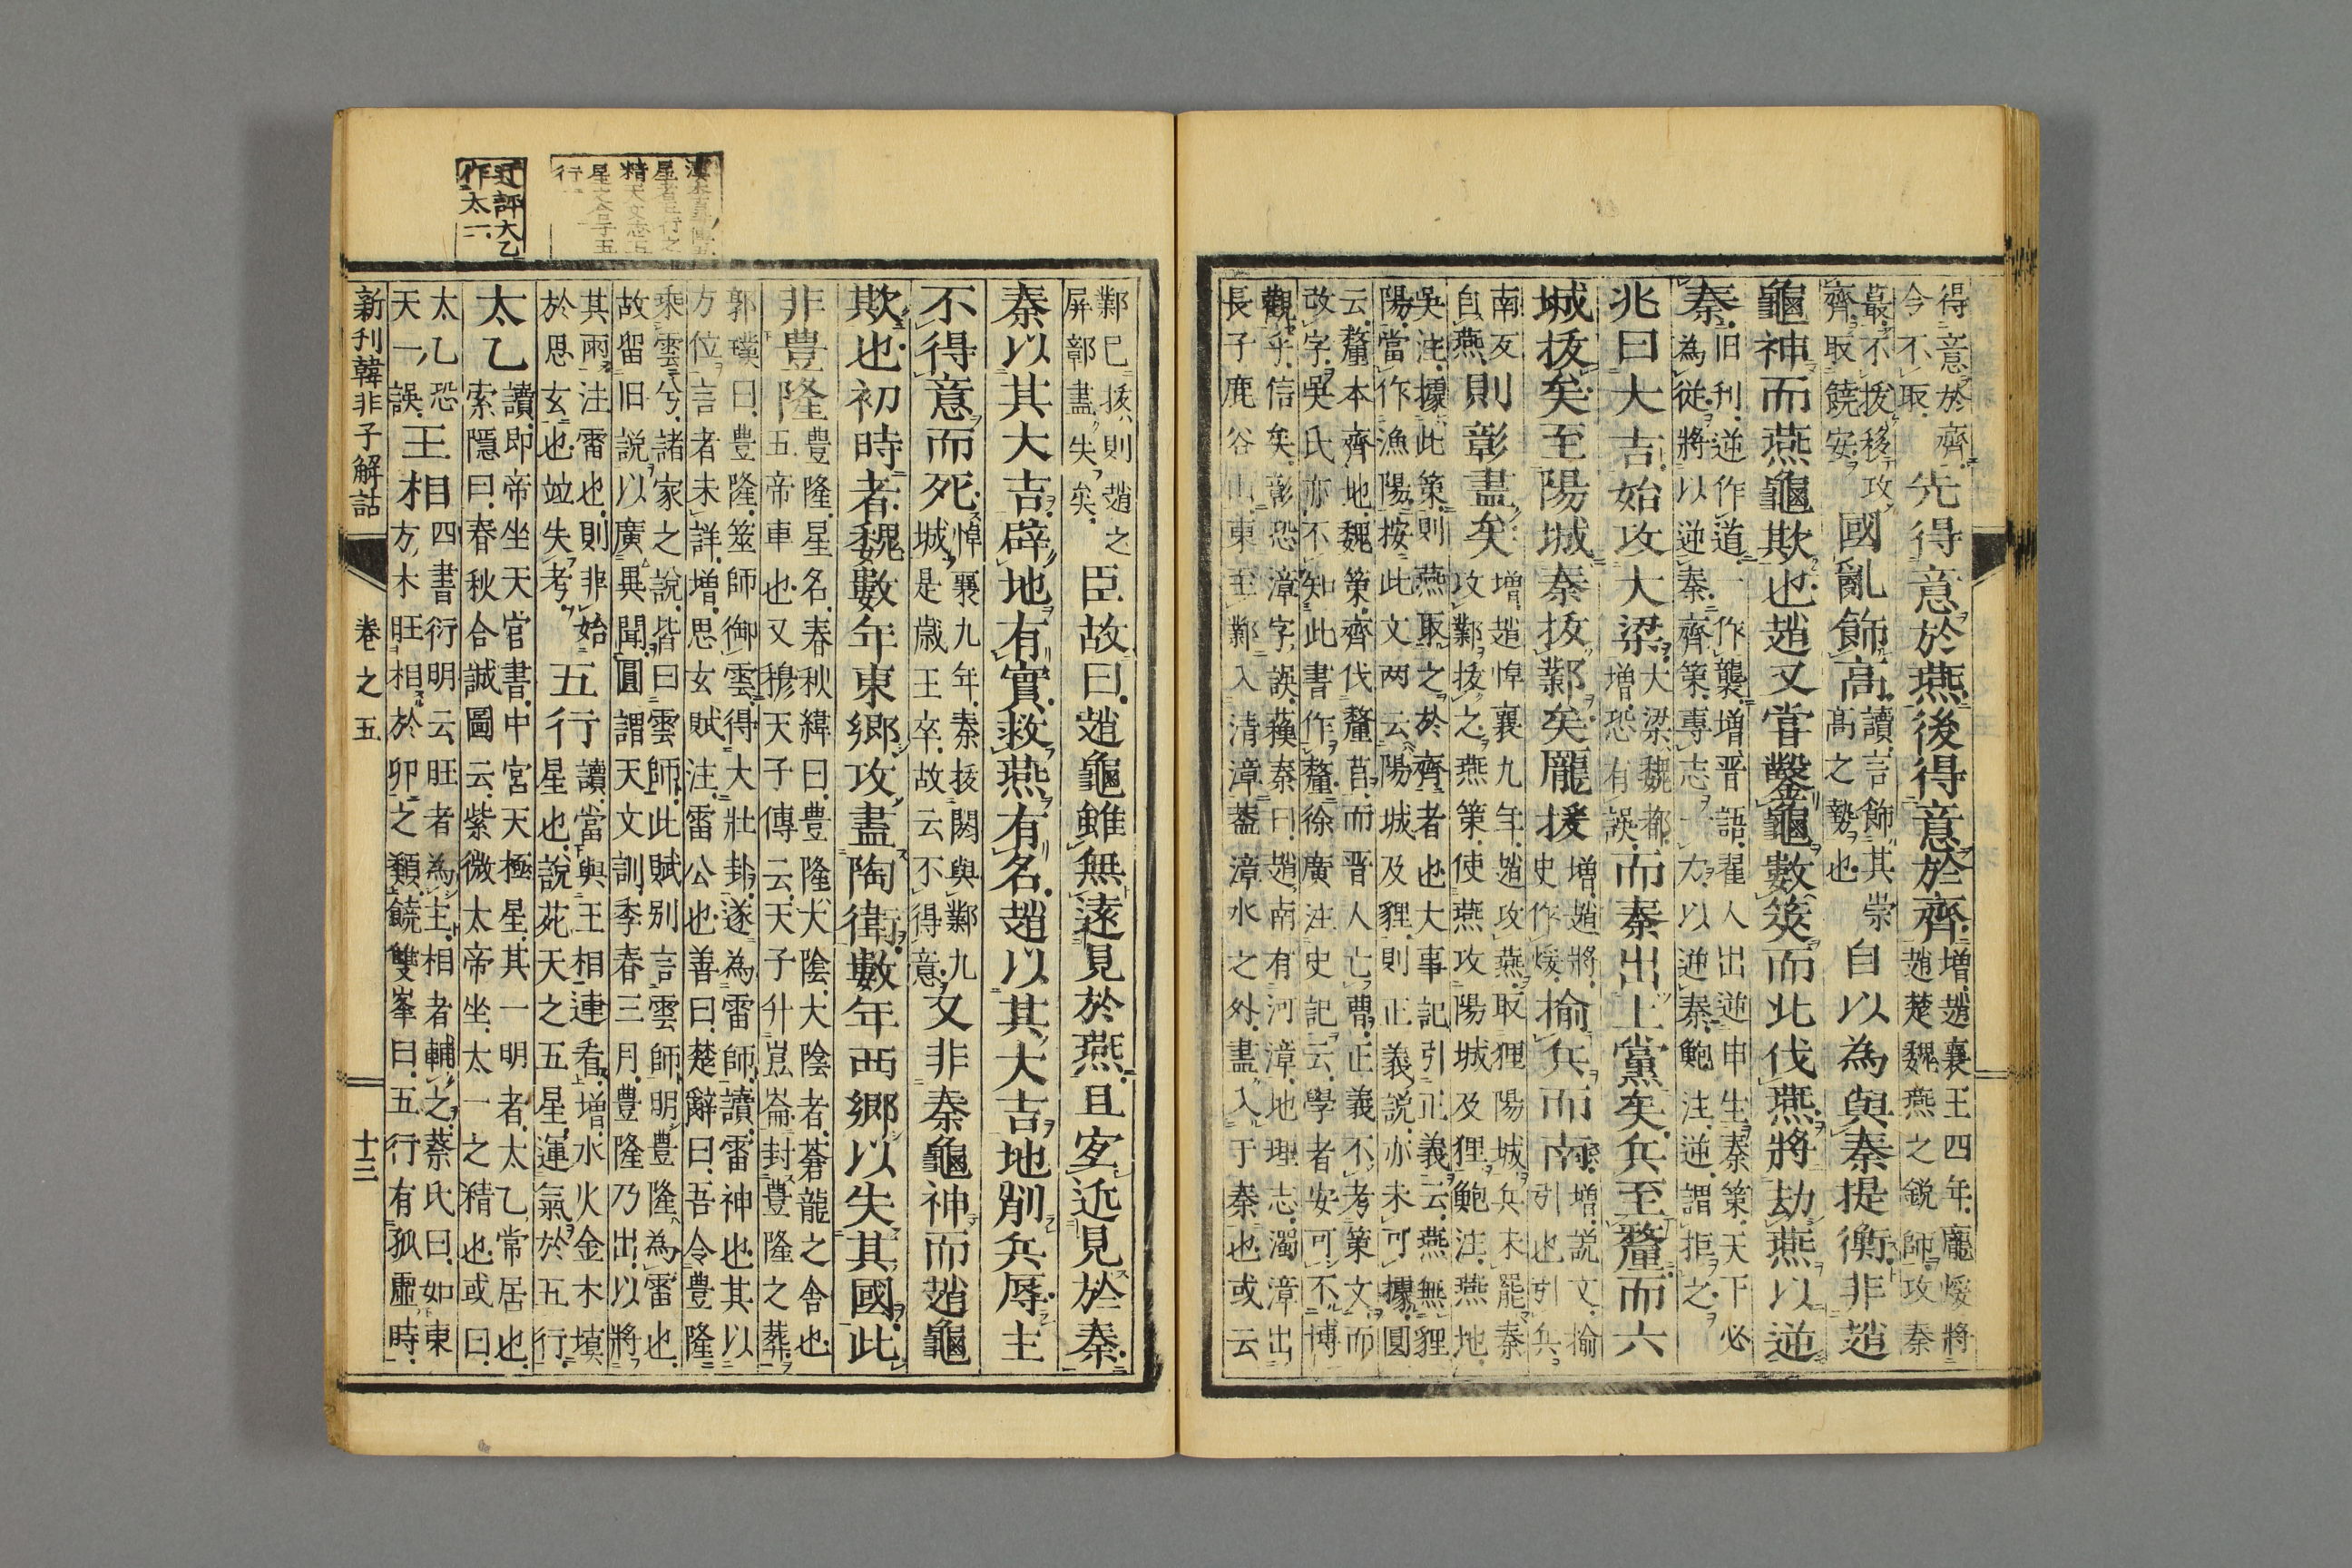 得意於齊先得意於燕後得意於齊増趙襄王四年龐煖將
今不取趙楚魏燕之銳師攻秦
蕞不拔移攻國亂飾高讀言飾其崇自以為與秦提衡非趙
齊取饒安高之勢也
龜神而燕龜欺也趙又嘗鑿龜數筴而北伐燕將劫燕以逆
秦旧刊逆作道一作襲増晋語翟人出逆申生秦策天下必
為從將以逆秦齊策專志一力以逆秦鮑注逆謂拒之
兆曰大吉始攻大梁大梁魏都増恐有誤而秦出上黨矣兵至釐而六
城拔矣至陽城秦拔鄴矣龐援増趙將史作煖揄兵而南増説文揄引也引兵
南反則鄣盡矣増趙悼襄九年趙攻燕取狸陽城兵未罷秦
自燕攻鄴拔之燕策使燕攻陽城及狸鮑注燕地
吳注據此策則燕取之於齊者也大事記引正義云燕無狸
陽當作漁陽按此文两云陽城及貍則正義説亦未可據圓
云釐本齊地魏策齊伐釐莒而晋人亡曹正義不考策文而
改字吳氏亦不知此書作釐徐廣注史記云學者安可不博
觀乎信矣彰恐漳字誤蘓秦曰趙南有河漳地理志濁漳出
長子鹿谷山東至鄴入清漳葢漳水之外盡入于秦也或云
鄴已拔則趙之臣故曰趙龜雖無遠見於燕且宐近見於秦
屏鄣盡失矣
秦以其大吉辟地有實救燕有名趙以其大吉地削兵辱主
不得意而死悼襄九年秦拔閼與鄴九又非秦龜神而趙龜
城是歳王卒故云不得意
欺也初時者魏數年東郷攻盡陶衛數年西郷以失其國此
非豊隆豊隆星名春秋緯曰豊隆大陰大陰者蒼龍之舎也
五帝車也又穆天子傳云天子升崑崙封豊隆之葬
郭璞曰豊隆筮師御雲得大壯卦遂為雷師讀雷神也其以
方位言者未詳増思玄賦注雷公也善曰楚辭曰吾令豊隆
乘雲兮諸家之説皆曰雲師此賦别言雲師明豊隆為雷也
故留旧説以廣異聞圓謂天文訓季春三月豊隆乃出以將
其兩注雷也則非始五行讀當與王相連看増水火金木塡
於思玄也竝失考星也説苑天之五星運氣於五行
太乙讀即帝坐天官書中宮天極星其一明者太乙常居也
索隱曰春秋合誠圖云紫微太帝坐太一之精也或曰
太乙恐王相四書衍明云旺者為主相者輔之蔡氏曰如東
天一誤方木旺相於卯之類饒雙峯曰五行有孤虛時
新刊韓非子解詁
卷之五
十三
行
迂評大乙
作太一